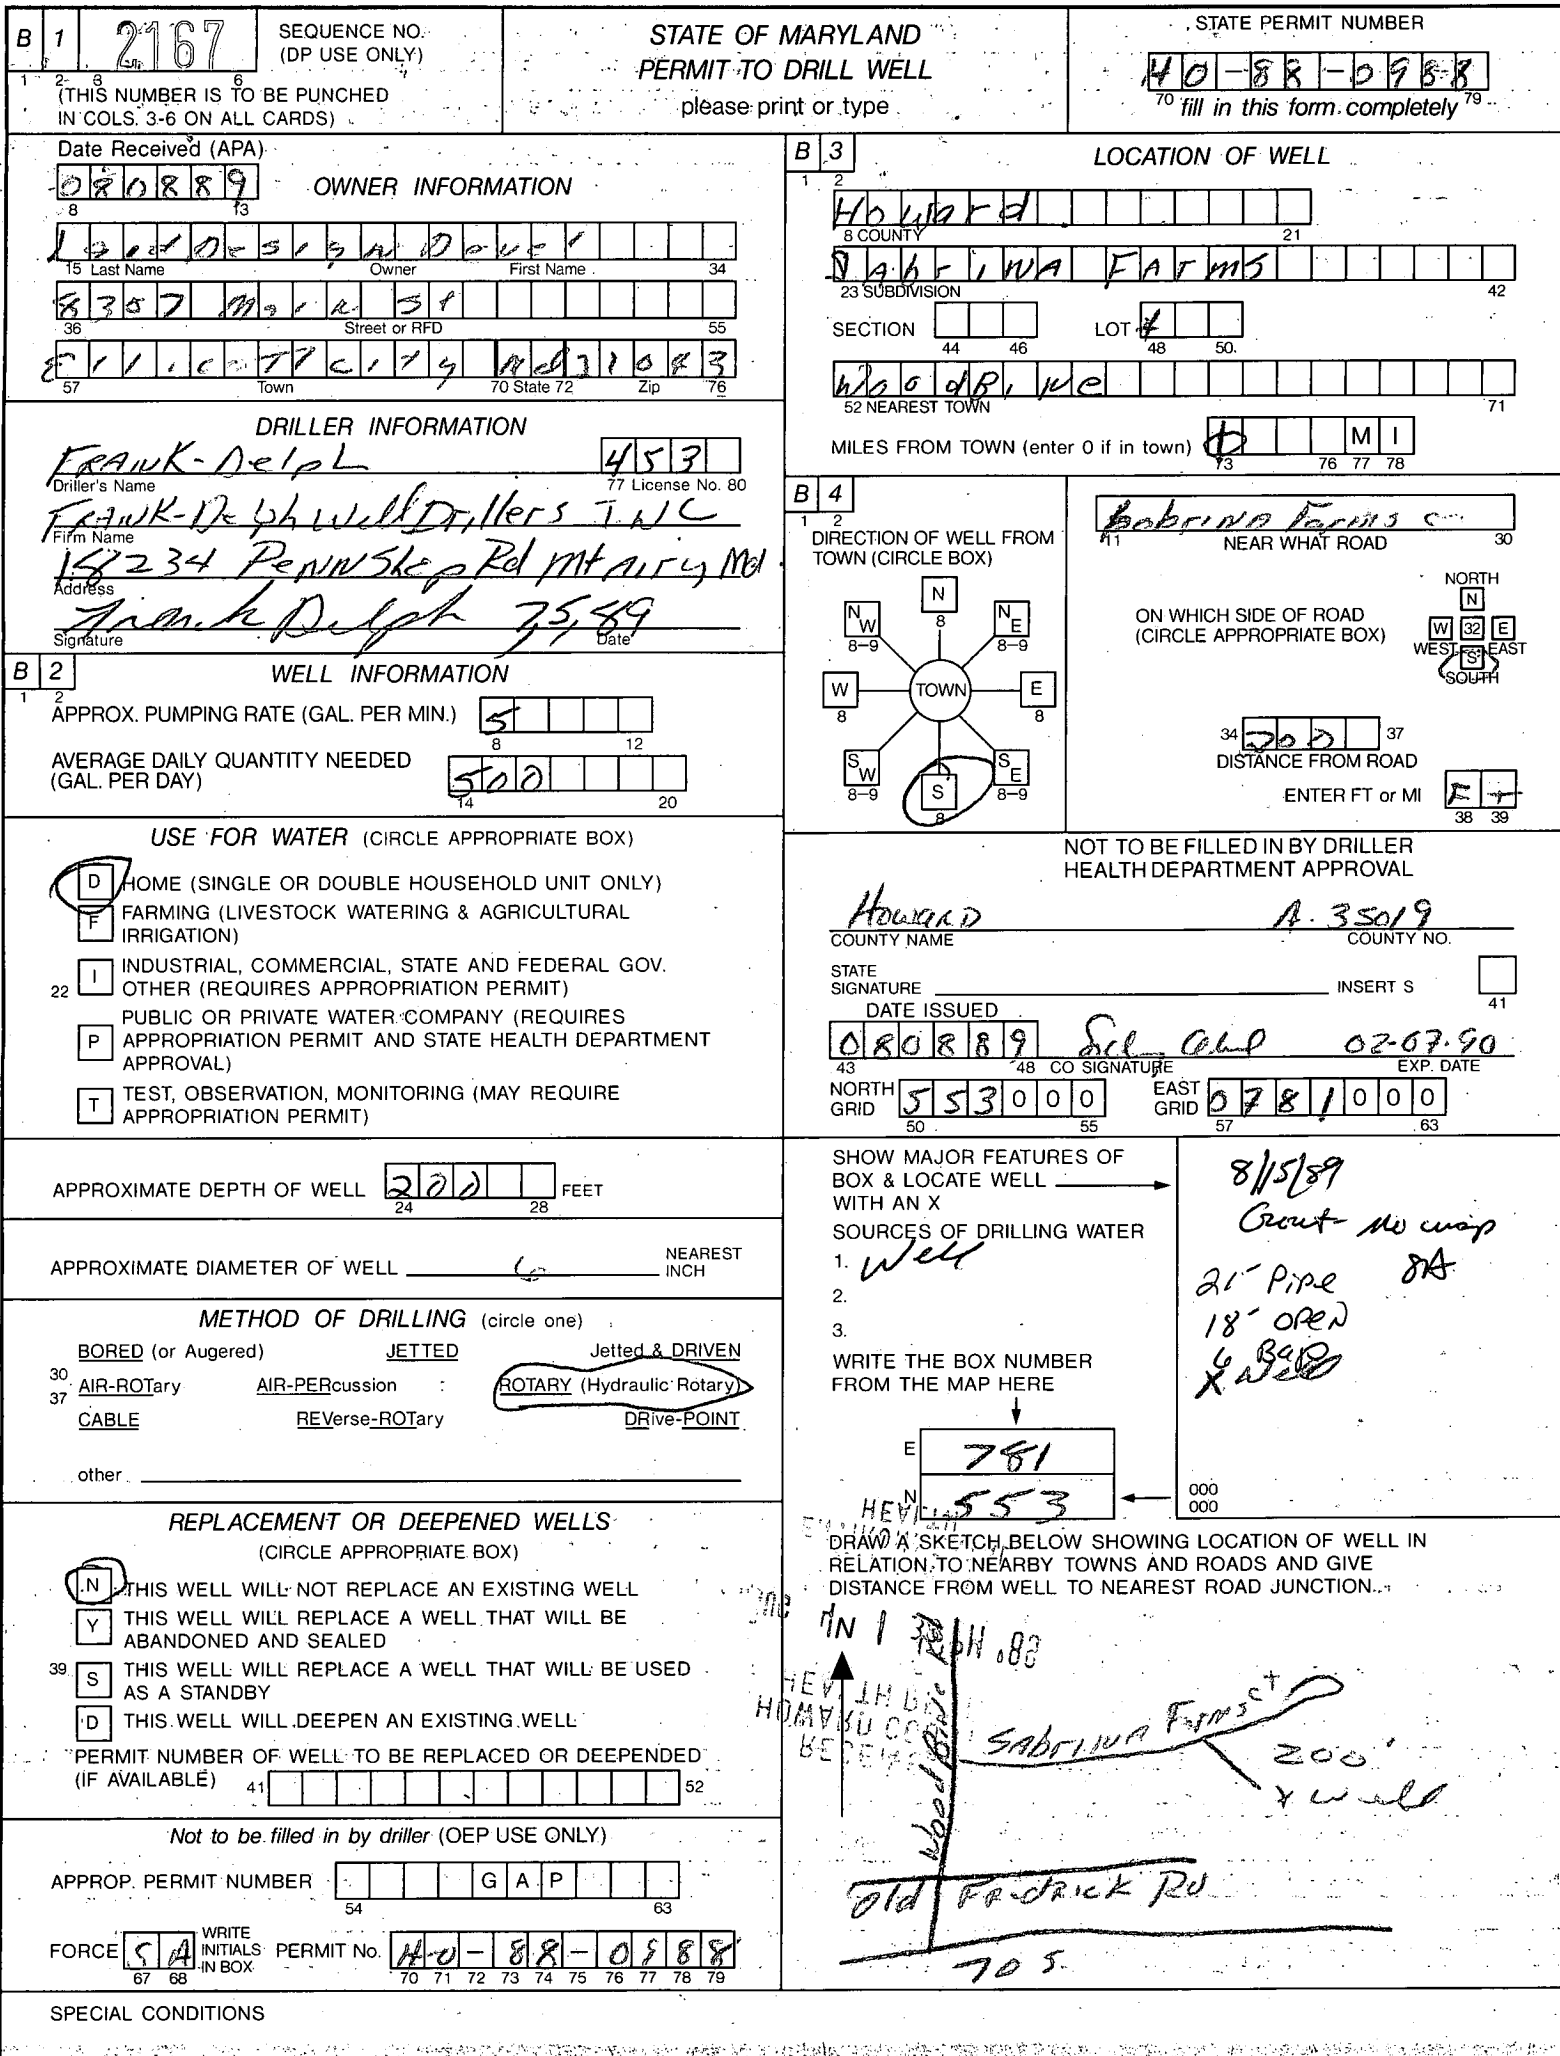 B 1 2167 SEQUENCE NO. (DP USE ONLY)
1 2 3 6
(THIS NUMBER IS TO BE PUNCHED
IN COLS. 3-6 ON ALL CARDS)
STATE OF MARYLAND
PERMIT TO DRILL WELL
please print or type
STATE PERMIT NUMBER
HO-88-0988
70 fill in this form completely 79
Date Received (APA)
080889
8 13
OWNER INFORMATION
Land Design Devel
15 Last Name Owner First Name 34
8357 Main St
36 Street or RFD 55
Ellicott City Md 21043
57 Town 70 State 72 Zip 76
DRILLER INFORMATION
FRANK-Delph 453
Driller's Name 77 License No. 80
FRANK-Delph Well Drillers INC
Firm Name
18234 PENN Shop Rd Mt Airy Md
Address
Frank Delph 7,5,89
Signature Date
B 2 WELL INFORMATION
1 2
APPROX. PUMPING RATE (GAL. PER MIN.) 5
8 12
AVERAGE DAILY QUANTITY NEEDED
(GAL. PER DAY) 500
14 20
USE FOR WATER (CIRCLE APPROPRIATE BOX)
D HOME (SINGLE OR DOUBLE HOUSEHOLD UNIT ONLY)
F FARMING (LIVESTOCK WATERING & AGRICULTURAL
IRRIGATION)
22 I INDUSTRIAL, COMMERCIAL, STATE AND FEDERAL GOV.
OTHER (REQUIRES APPROPRIATION PERMIT)
P PUBLIC OR PRIVATE WATER COMPANY (REQUIRES
APPROPRIATION PERMIT AND STATE HEALTH DEPARTMENT
APPROVAL)
T TEST, OBSERVATION, MONITORING (MAY REQUIRE
APPROPRIATION PERMIT)
APPROXIMATE DEPTH OF WELL 200 FEET
24 28
APPROXIMATE DIAMETER OF WELL 6 NEAREST
INCH
METHOD OF DRILLING (circle one)
BORED (or Augered) JETTED Jetted & DRIVEN
30 AIR-ROTary AIR-PERcussion : ROTARY (Hydraulic Rotary)
37
CABLE REVerse-ROTary DRive-POINT
other
REPLACEMENT OR DEEPENED WELLS
(CIRCLE APPROPRIATE BOX)
N THIS WELL WILL NOT REPLACE AN EXISTING WELL
Y THIS WELL WILL REPLACE A WELL THAT WILL BE
ABANDONED AND SEALED
39 S THIS WELL WILL REPLACE A WELL THAT WILL BE USED
AS A STANDBY
D THIS WELL WILL DEEPEN AN EXISTING WELL
PERMIT NUMBER OF WELL TO BE REPLACED OR DEEPENDED
(IF AVAILABLE) 41 52
Not to be filled in by driller (OEP USE ONLY)
APPROP. PERMIT NUMBER G A P
54 63
FORCE SA WRITE INITIALS IN BOX PERMIT No. HO-88-0988
67 68 70 71 72 73 74 75 76 77 78 79
SPECIAL CONDITIONS
B 3 LOCATION OF WELL
1 2
Howard
8 COUNTY 21
SabrINA FArmS
23 SUBDIVISION 42
SECTION LOT
44 46 48 50
WoodBine
52 NEAREST TOWN 71
MILES FROM TOWN (enter 0 if in town) M I
73 76 77 78
B 4
1 2
DIRECTION OF WELL FROM
TOWN (CIRCLE BOX)
N
8
NW NE
8-9 8-9
W TOWN E
8 8
SW SE
8-9 8-9
S
8
Sabrina Farms C
11 NEAR WHAT ROAD 30
ON WHICH SIDE OF ROAD
(CIRCLE APPROPRIATE BOX)
NORTH
N
W 32 E
WEST EAST
S
SOUTH
34 200 37
DISTANCE FROM ROAD
ENTER FT or MI Ft
38 39
NOT TO BE FILLED IN BY DRILLER
HEALTH DEPARTMENT APPROVAL
HowARD A. 35019
COUNTY NAME COUNTY NO.
STATE
SIGNATURE INSERT S
41
DATE ISSUED
080889 02-07-90
43 48 CO SIGNATURE EXP. DATE
NORTH GRID 553000 EAST GRID 0781000
50 55 57 63
SHOW MAJOR FEATURES OF
BOX & LOCATE WELL
WITH AN X
SOURCES OF DRILLING WATER
1. Well
2.
3.
WRITE THE BOX NUMBER
FROM THE MAP HERE
E 781
N 553
8/15/89
Grout - No insp
SA
21' Pipe
18' OPEN
6 Bags
X Well
000
000
DRAW A SKETCH BELOW SHOWING LOCATION OF WELL IN
RELATION TO NEARBY TOWNS AND ROADS AND GIVE
DISTANCE FROM WELL TO NEAREST ROAD JUNCTION
N
WoodBine Rd
Sabrina Farms ct
200'
X Well
Old Fredrick Rd
70 S.